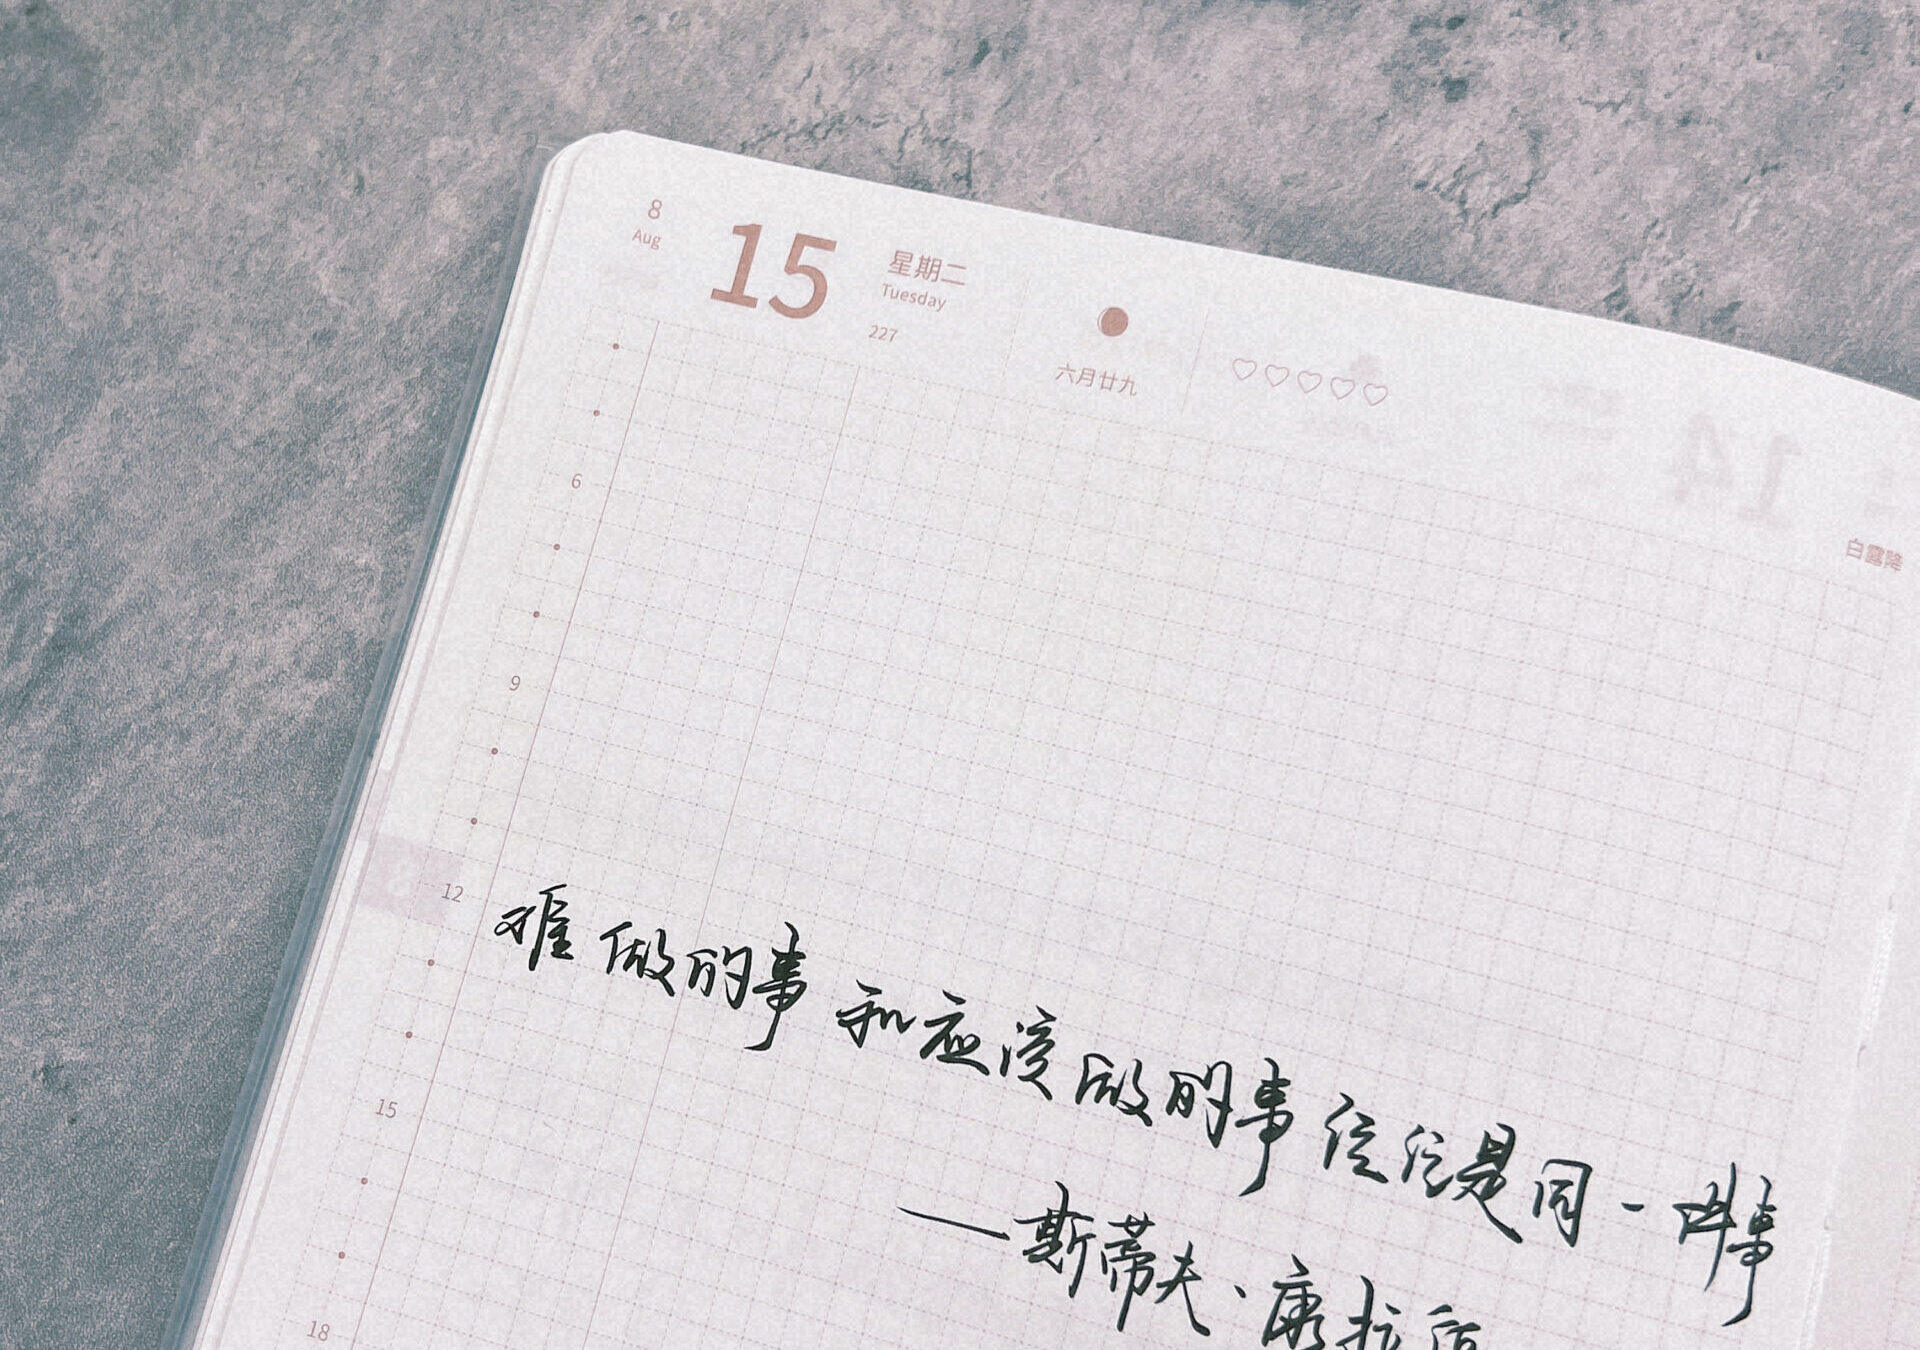 8
Aug
15
星期二
Tuesday
227
六月廿九
14
白露降
6
9
12
15
18
难做的事和应该做的事往往是同一件事
—斯蒂夫·康拉